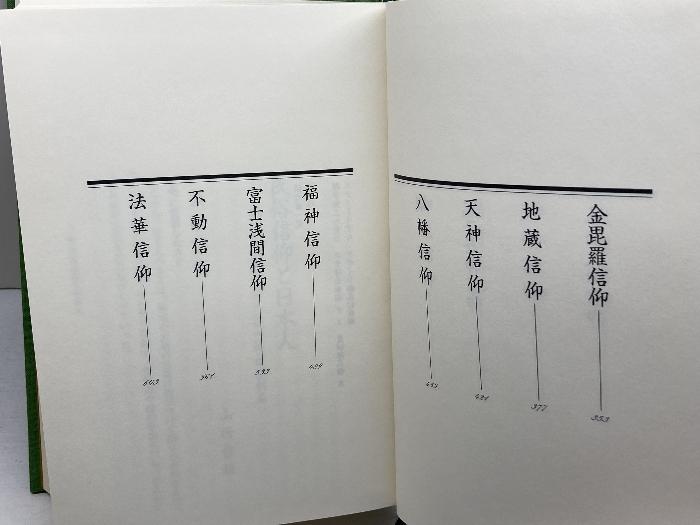 金毘羅信仰 353
地蔵信仰 377
天神信仰 421
八幡信仰
福神信仰
富士浅間信仰
不動信仰
法華信仰